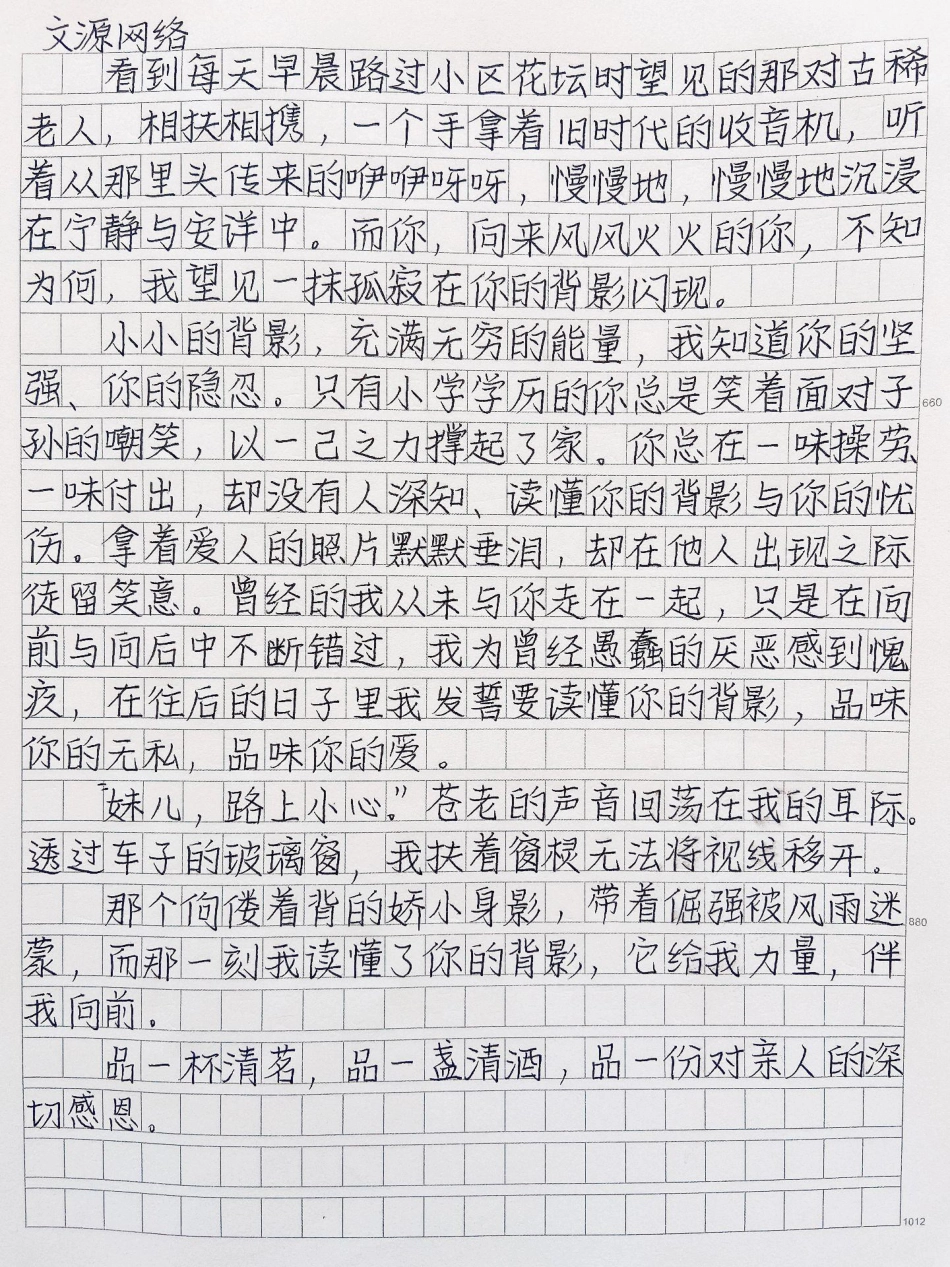 文源网络
看到每天早晨路过小区花坛时望见的那对古稀
老人，相扶相携，一个手拿着旧时代的收音机，听
着从那里头传来的咿咿呀呀，慢慢地，慢慢地沉浸
在宁静与安详中。而你，向来风风火火的你，不知
为何，我望见一抹孤寂在你的背影闪现。
小小的背影，充满无穷的能量，我知道你的坚
强、你的隐忍。只有小学学历的你总是笑着面对子
660
孙的嘲笑，以一己之力撑起了家。你总在一味操劳、
一味付出，却没有人深知、读懂你的背影与你的忧
伤。拿着爱人的照片默默垂泪，却在他人出现之际
徒留笑意。曾经的我从未与你走在一起，只是在向
前与向后中不断错过，我为曾经愚蠢的厌恶感到愧
疚，在往后的日子里我发誓要读懂你的背影，品味
你的无私，品味你的爱。
“妹儿，路上小心。”苍老的声音回荡在我的耳际。
透过车子的玻璃窗，我扶着窗棂无法将视线移开。
那个佝偻着背的娇小身影，带着倔强被风雨迷
880
蒙，而那一刻我读懂了你的背影，它给我力量，伴
我向前。
品一杯清茗，品一盏清酒，品一份对亲人的深
切感恩。
1012